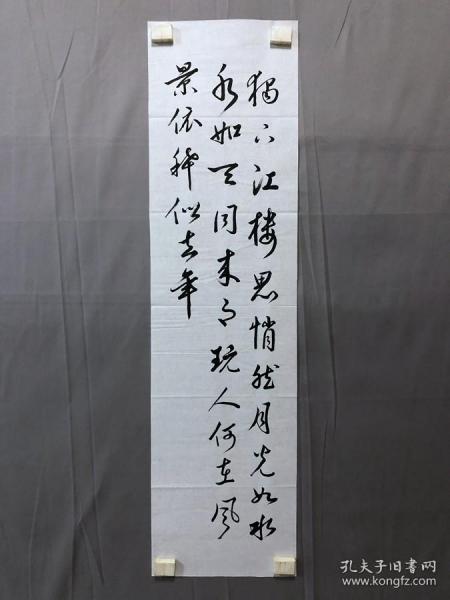 獨上江樓思悄然月光如水
水如天同來月玩人何在風
景依稀似去年
孔夫子旧书网
www.kongfz.com